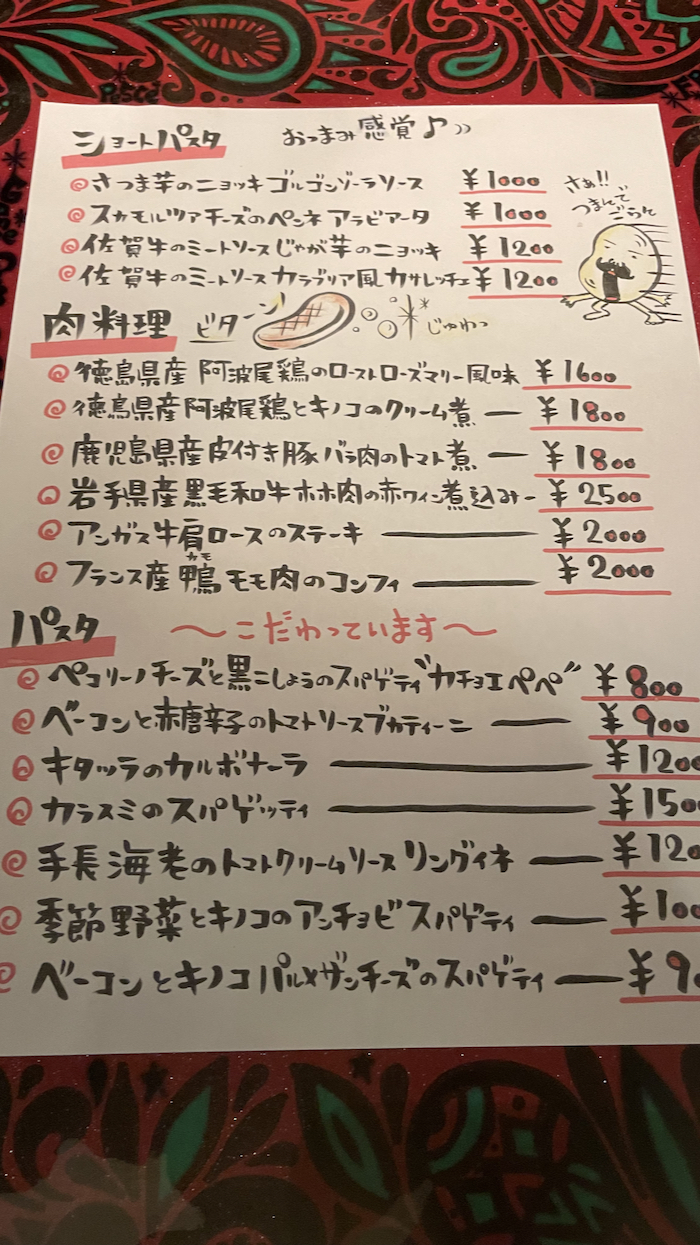 ショートパスタ おつまみ感覚♪
さつま芋のニョッキゴルゴンゾーラソース ¥1000
スカモルツァチーズのペンネアラビアータ ¥1000
佐賀牛のミートソースじゃが芋のニョッキ ¥1200
佐賀牛のミートソースカラブリア風カサレッチェ ¥1200
さぁ!!
つまんで
ごらん
肉料理 ビターン じゅわっ
徳島県産 阿波尾鶏のローストローズマリー風味 ¥1600
徳島県産阿波尾鶏とキノコのクリーム煮 ¥1800
鹿児島県産皮付き豚バラ肉のトマト煮 ¥1800
岩手県産黒毛和牛ホホ肉の赤ワイン煮込み ¥2500
アンガス牛肩ロースのステーキ ¥2000
カモ
フランス産鴨モモ肉のコンフィ ¥2000
パスタ 〜こだわっています〜
ペコリーノチーズと黒こしょうのスパゲティ"カチョエペペ" ¥800
ベーコンと赤唐辛子のトマトソースブカティーニ ¥900
キタッラのカルボナーラ ¥1200
カラスミのスパゲッティ ¥150
手長海老のトマトクリームソースリングイネ ¥120
季節野菜とキノコのアンチョビスパゲティ ¥100
ベーコンとキノコパルメザンチーズのスパゲティ ¥90